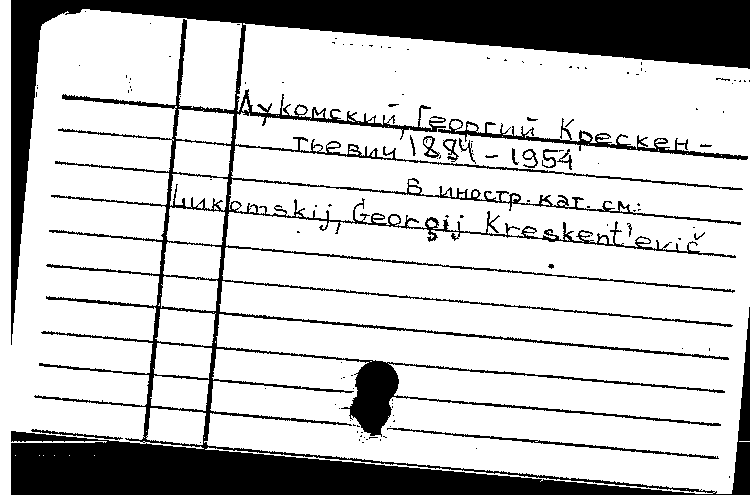 Лукомский, Георгий Крескен-
тьевич, 1884-1954
в иностр. кат. см.:
Lukomskij, Georgij Kreskent'evič